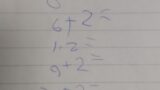 6+2=
1+2=
9+2=